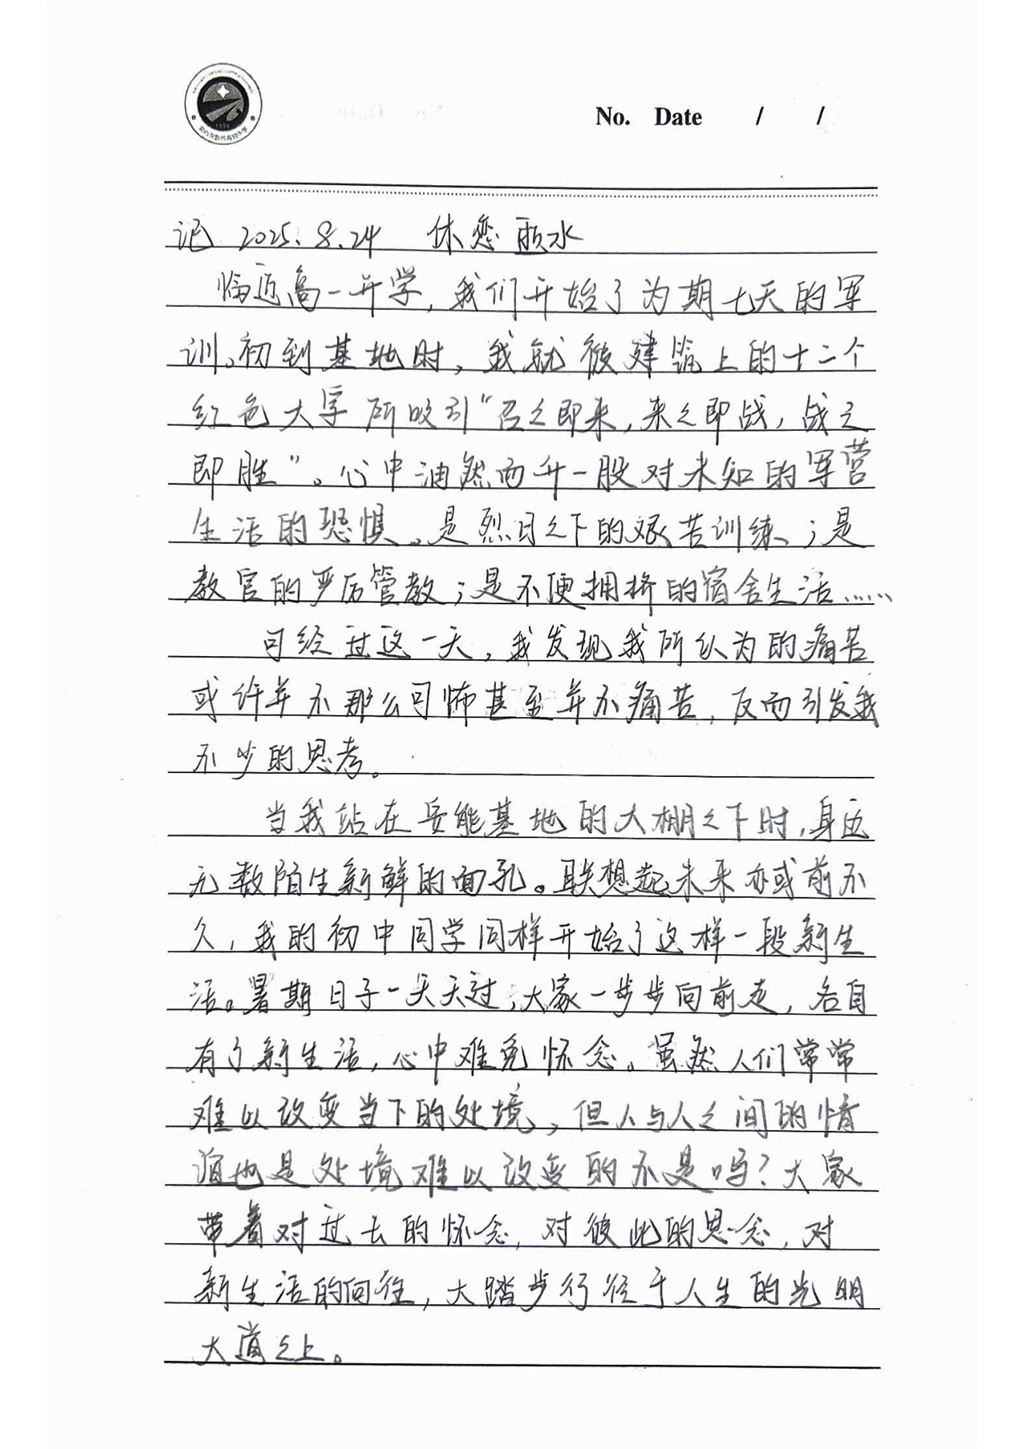 No. Date / /
记 2025.8.24 休恋雨水
临近高一开学，我们开始了为期七天的军
训。初到基地时，我就被建筑上的十二个
红色大字所吸引“召之即来，来之即战，战之
即胜”。心中油然而升一股对未知的军营
生活的恐惧。是烈日之下的艰苦训练；是
教官的严厉管教；是不便拥挤的宿舍生活……
可经过这一天，我发现我所认为的痛苦
或许并不那么可怖甚至并不痛苦，反而引发我
不少的思考。
当我站在安能基地的大棚之下时，身边
无数陌生新鲜的面孔。联想起未来亦或前不
久，我的初中同学同样开始了这样一段新生
活。暑期日子一天天过，大家一步步向前走，各自
有了新生活，心中难免怀念。虽然人们常常
难以改变当下的处境，但人与人之间的情
谊也是处境难以改变的不是吗？大家
带着对过去的怀念，对彼此的思念，对
新生活的向往，大踏步行径于人生的光明
大道之上。